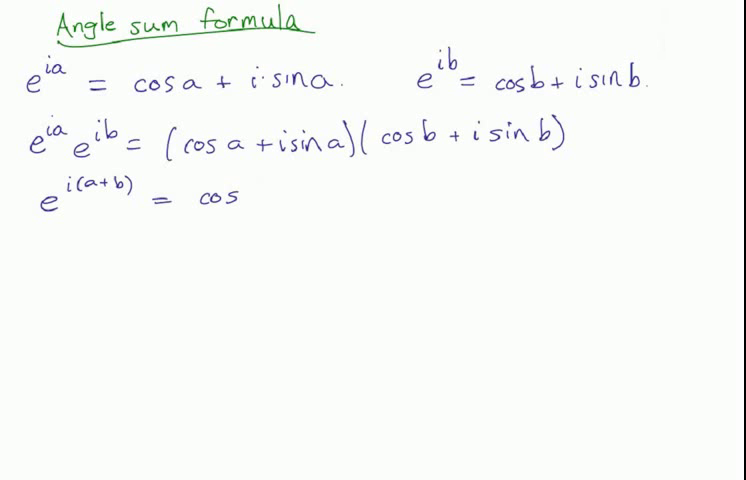 Angle sum formula
e^{ia} = cos a + i·sin a. e^{ib} = cos b + i sin b.
e^{ia} e^{ib} = (cos a + i sin a)(cos b + i sin b)
e^{i(a+b)} = cos